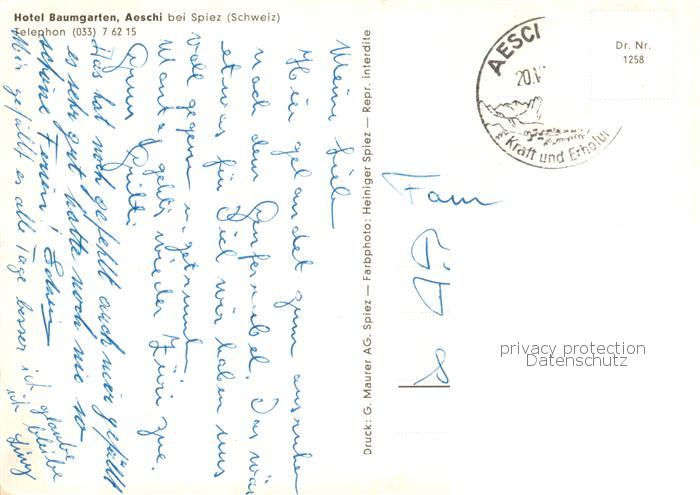 Hotel Baumgarten, Aeschi bei Spiez (Schweiz)
Telephon (033) 7 62 15
Meine
Hier gelandet zum ausruhen
nach dem Genfernebel. Das wär
etwas für Dich wir haben uns
voll gegessen u. getrunken.
Montag gehts wieder Züri zue.
Gruss
Das hat noch gefehlt auch mir gefällt
es sehr gut hatte noch nie so
schöne Ferien!
Mir gefällt es alle Tage besser ich glaube
ich bleibe
Druck: G. Maurer AG. Spiez — Farbphoto: Heiniger Spiez — Repr. interdite
AESCHI
20.
Kraft und Erholun
Dr. Nr.
1258
Fam
8
privacy protection
Datenschutz